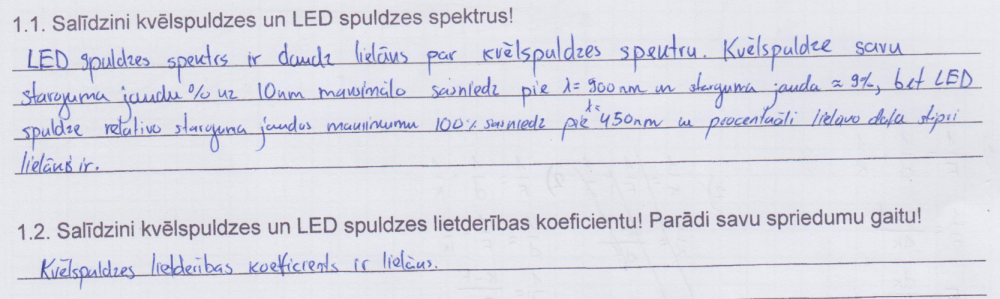 1.1. Salīdzini kvēlspuldzes un LED spuldzes spektrus!
LED spuldzes spektrs ir daudz lielāks par kvēlspuldzes spektru. Kvēlspuldze savu
starojuma jaudu % uz 10nm maksimālo sasniedz pie λ=900nm un starojuma jauda ≈ 9%, bet LED
spuldze relatīvo starojuma jaudas maksimumu 100% sasniedz pie λ=450nm un procentuāli lielāko daļa stipri
lielāka ir.
1.2. Salīdzini kvēlspuldzes un LED spuldzes lietderības koeficientu! Parādi savu spriedumu gaitu!
Kvēlspuldzes lietderības koeficients ir lielāks.